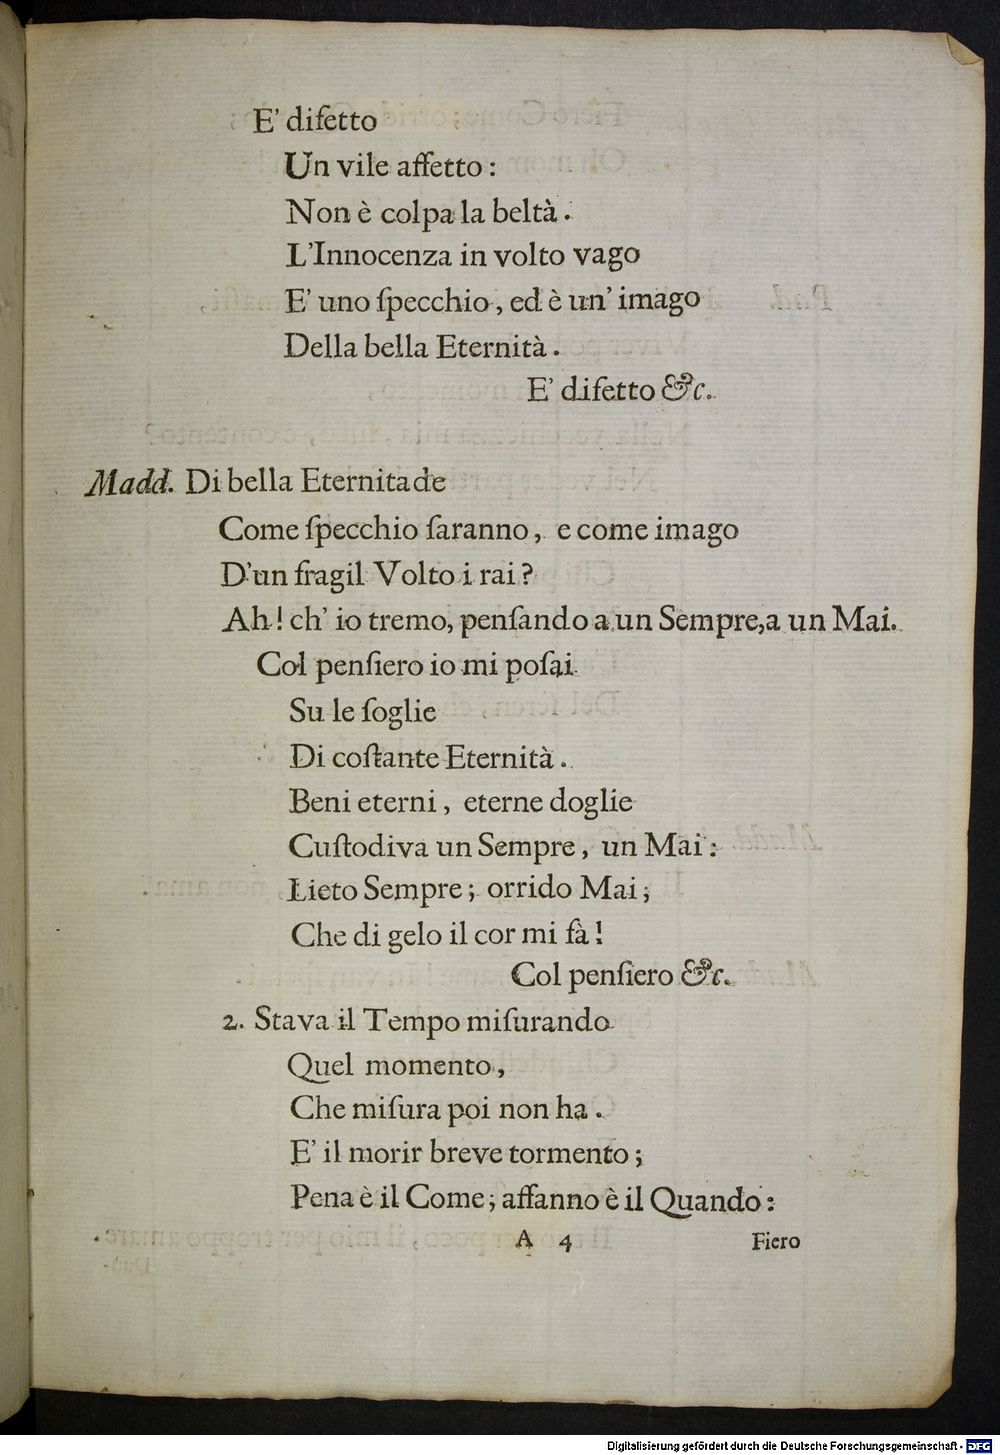 E' difetto
Un vile affetto :
Non è colpa la beltà .
L'Innocenza in volto vago
E' uno ſpecchio , ed è un' imago
Della bella Eternità .
E' difetto &c.
Madd. Di bella Eternitade
Come ſpecchio ſaranno , e come imago
D'un fragil Volto i rai ?
Ah ! ch' io tremo, penſando a un Sempre, a un Mai.
Col penſiero io mi poſai
Su le ſoglie
Di coſtante Eternità .
Beni eterni , eterne doglie
Cuſtodiva un Sempre , un Mai :
Lieto Sempre ; orrido Mai ;
Che di gelo il cor mi fà !
Col penſiero &c.
2. Stava il Tempo miſurando
Quel momento ,
Che miſura poi non ha .
E' il morir breve tormento ;
Pena è il Come ; affanno è il Quando :
A 4 Fiero
Digitalisierung gefördert durch die Deutsche Forschungsgemeinschaft - DFG